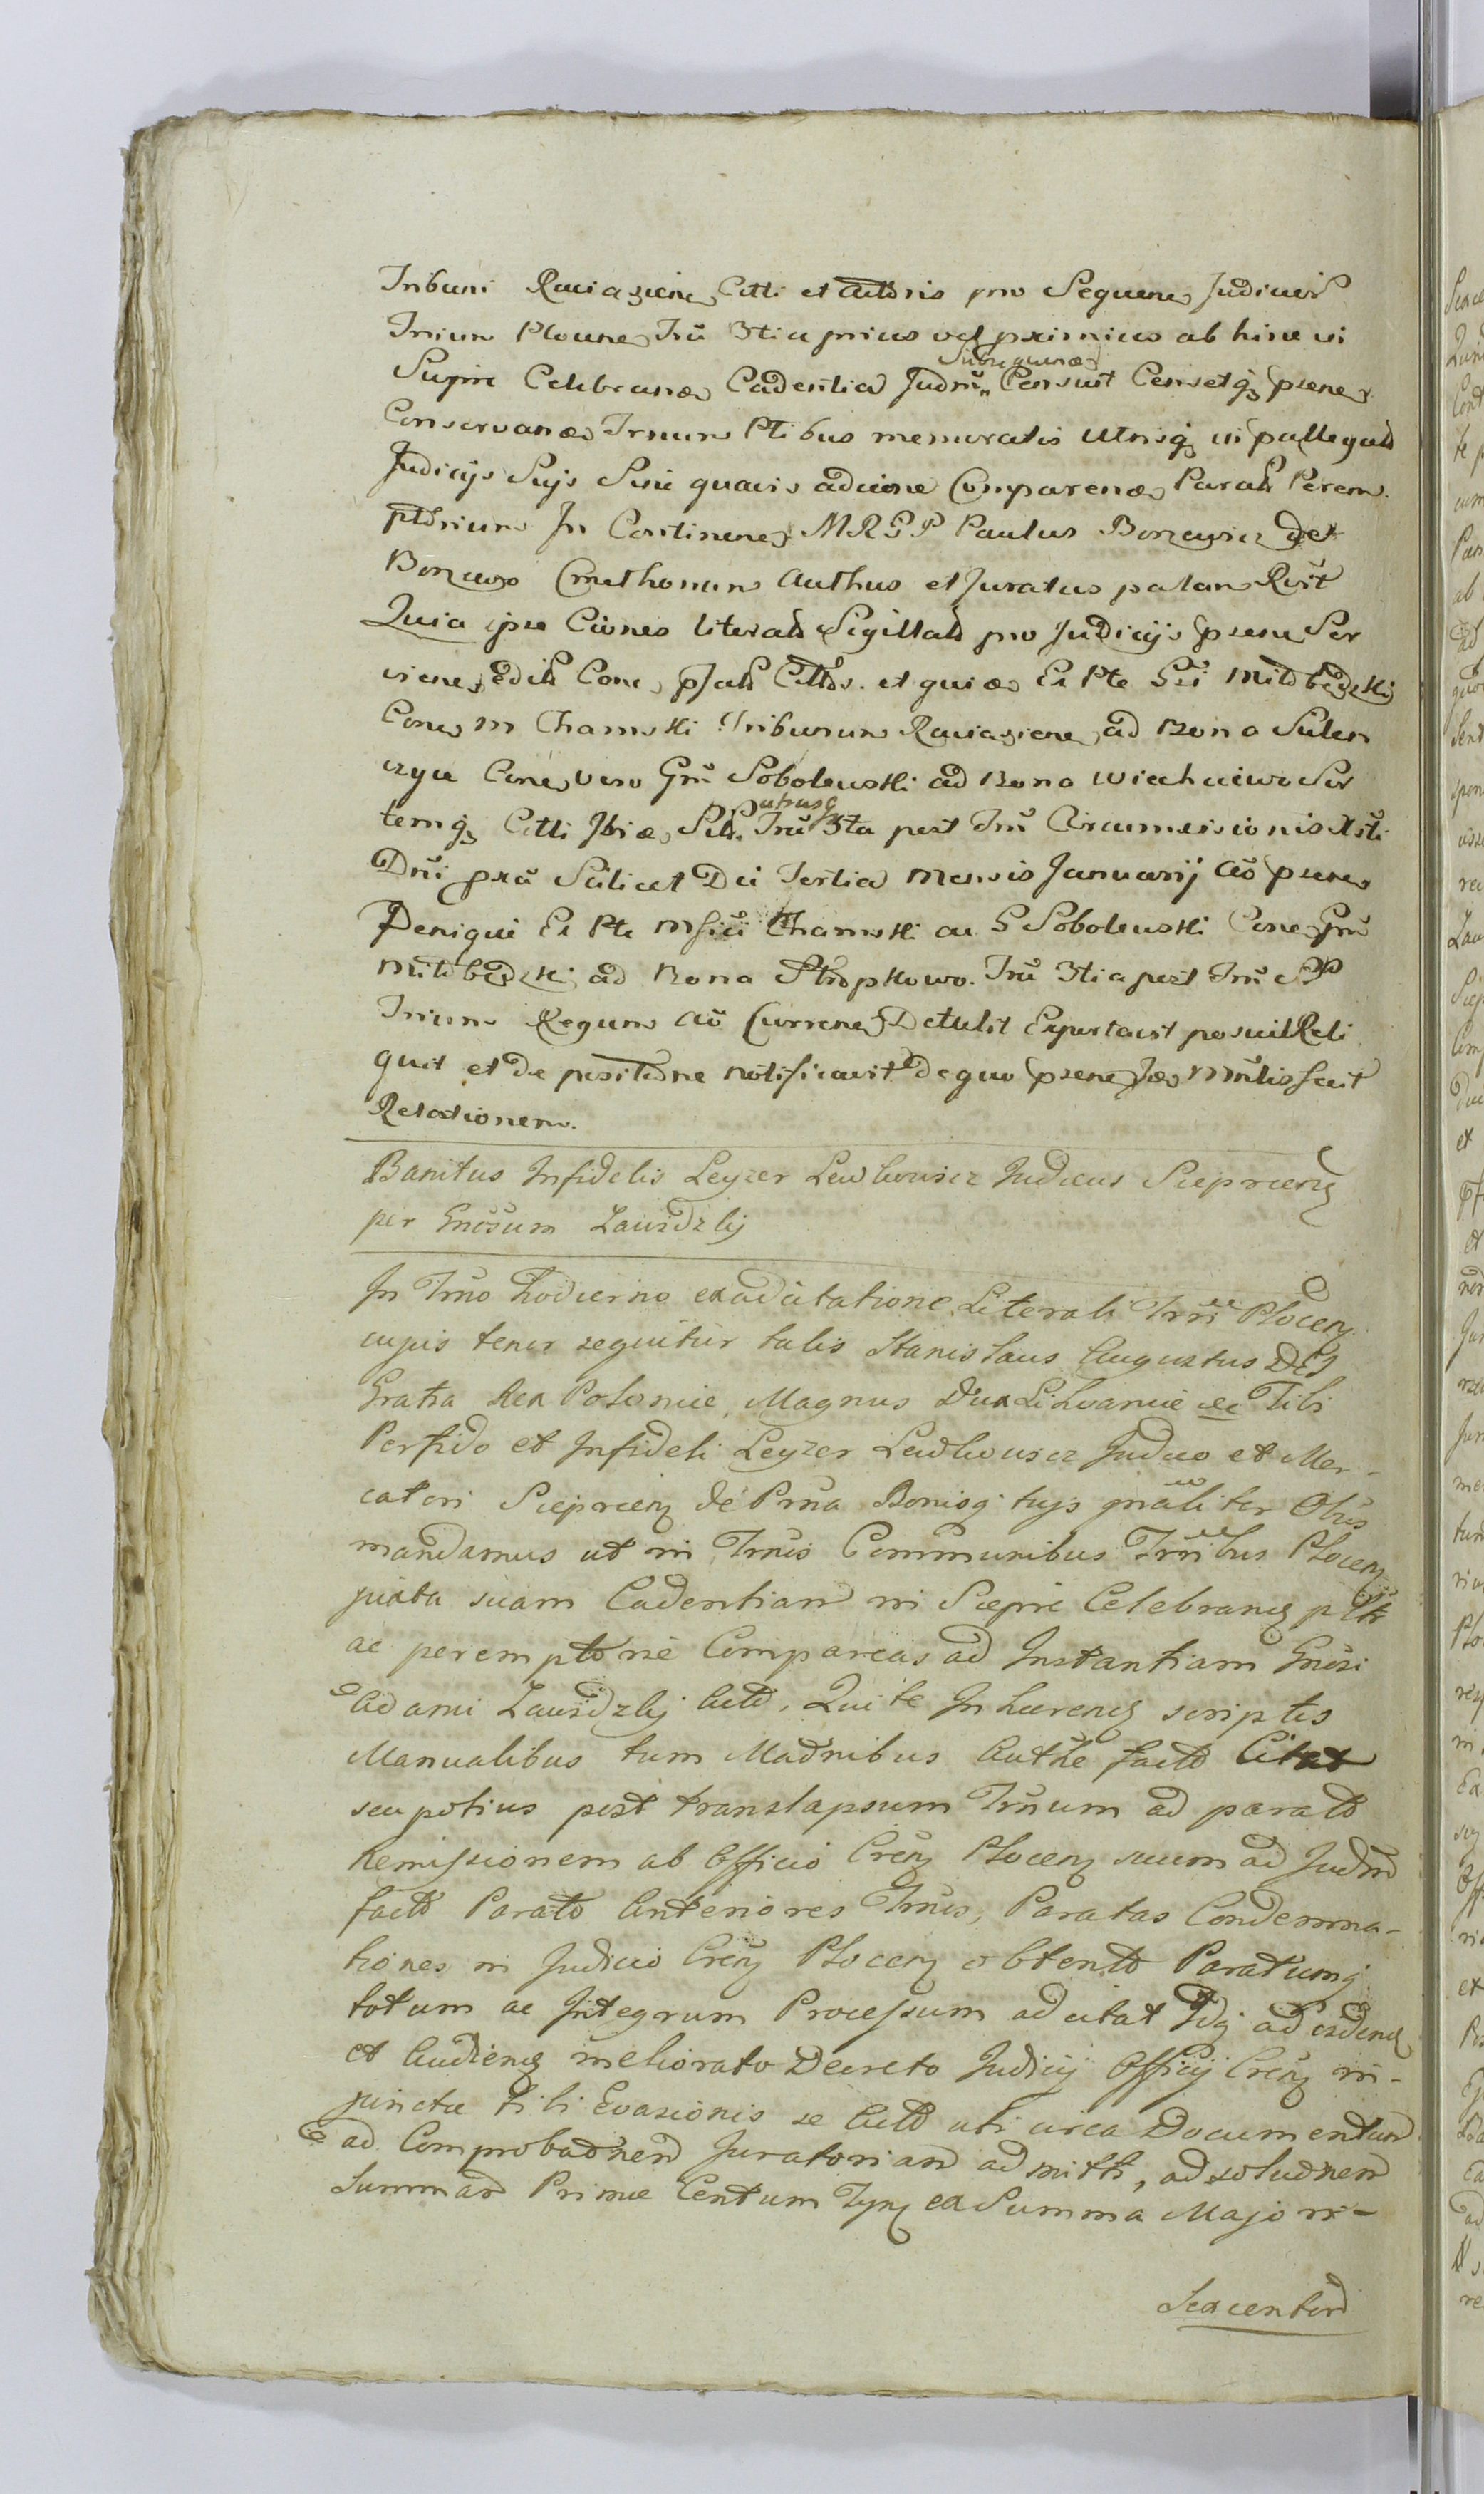 Tribuni Raciąziene Citti et Actoris pro Sequene Judicior
Trium Plocene Tru 3tia prius vel pximius ab hinc in
Siepre Celebranœ Cadentia Judrn Subsequenœ Censuit Censetq psene
Conservanœ Trnum Ptibus memoratis Utrisq in pallegatt
Judicijs Sujs Sine quavis adcione Comparenœ Paratt Perem
ptorium In Continene MRGP Paulus Borzewicz det
Borzewo Cmethonum Authus et Juratus palam Rvit
Quia ipse Ciones literatt Sigillatt pro Judicijs psene Ser
viene Editt Conc pJatt Cittos. et quiœ Ex Pte Gsi Miłobędzki
Cone M Chamski Tribunum Raciąziene ad Bona Sulen
czyce Cone vero Grn Sobolewski ad Bona Wichciewo Sor
temq Citti Ibiœ Sitt. utrusq Tru 3ta post Trn Circumcisionis Xsti
Dni pxa Scilicet Die Tertia Mensis Januarij Ao psene
Denique Ex Pte Msici Chamski ac G Sobolewski Cone Grn
Miłobędzki ad Bona Stropkowo. Tru 3tia post Trn SS
Trium Regum Ao Currene Detulit Exportavit posuit Reli
quit et de positione notificavit de quo psene Jœ Mnlis fecit
Relationem.
Banitus Infidelis Leyzer Lewkowicz Judæus Sieprcenz
per Gnosum Zawidzkj
In Trno hodierno ex adcitatione Literali Trri Plocenz
cujus tenor sequitur talis Stanislaus Augustus DEJ
Gratia Rex Poloniæ, Magnus Dux Lithvaniæ &c Tibi
Perfido et Infideli Leyzer Lewkowicz Judæo et Mer-
catori Sieprcenz de Prna Bonisq tujs gnaliter Obus
mandamus ut in Trnis Communibus Trribus Plocenz
juxta suam Cadentiam in Siepre Celebranz pltr
ac peremptorie Compareas ad Instantiam Gnosi
Adami Zawidzkj Actt. Qui te Inhærenz scriptis
Manualibus tum Madnibus Authe factt Citat
seu potius post translapsum Trnum ad paratt
Remissionem ab Officio Crenz Plocenz suum ad Judrn
factt Paratt Anteriores Trnis, Paratas Condemna-
tiones in Judicio Crenz Plocenz obtentt Paratumq
totum ac Integrum Processum adcitat Idq ad vidend
et Audienz meliorato Decreto Judicij Officij Crenz in-
puncto tibi Evasionis se Actt uti circa Documentum
ad Comprobadnem Juratoriam admitti, ad soludnem
Summam Primæ Centum Tynz ex Summa Majori-
Sexcentorum